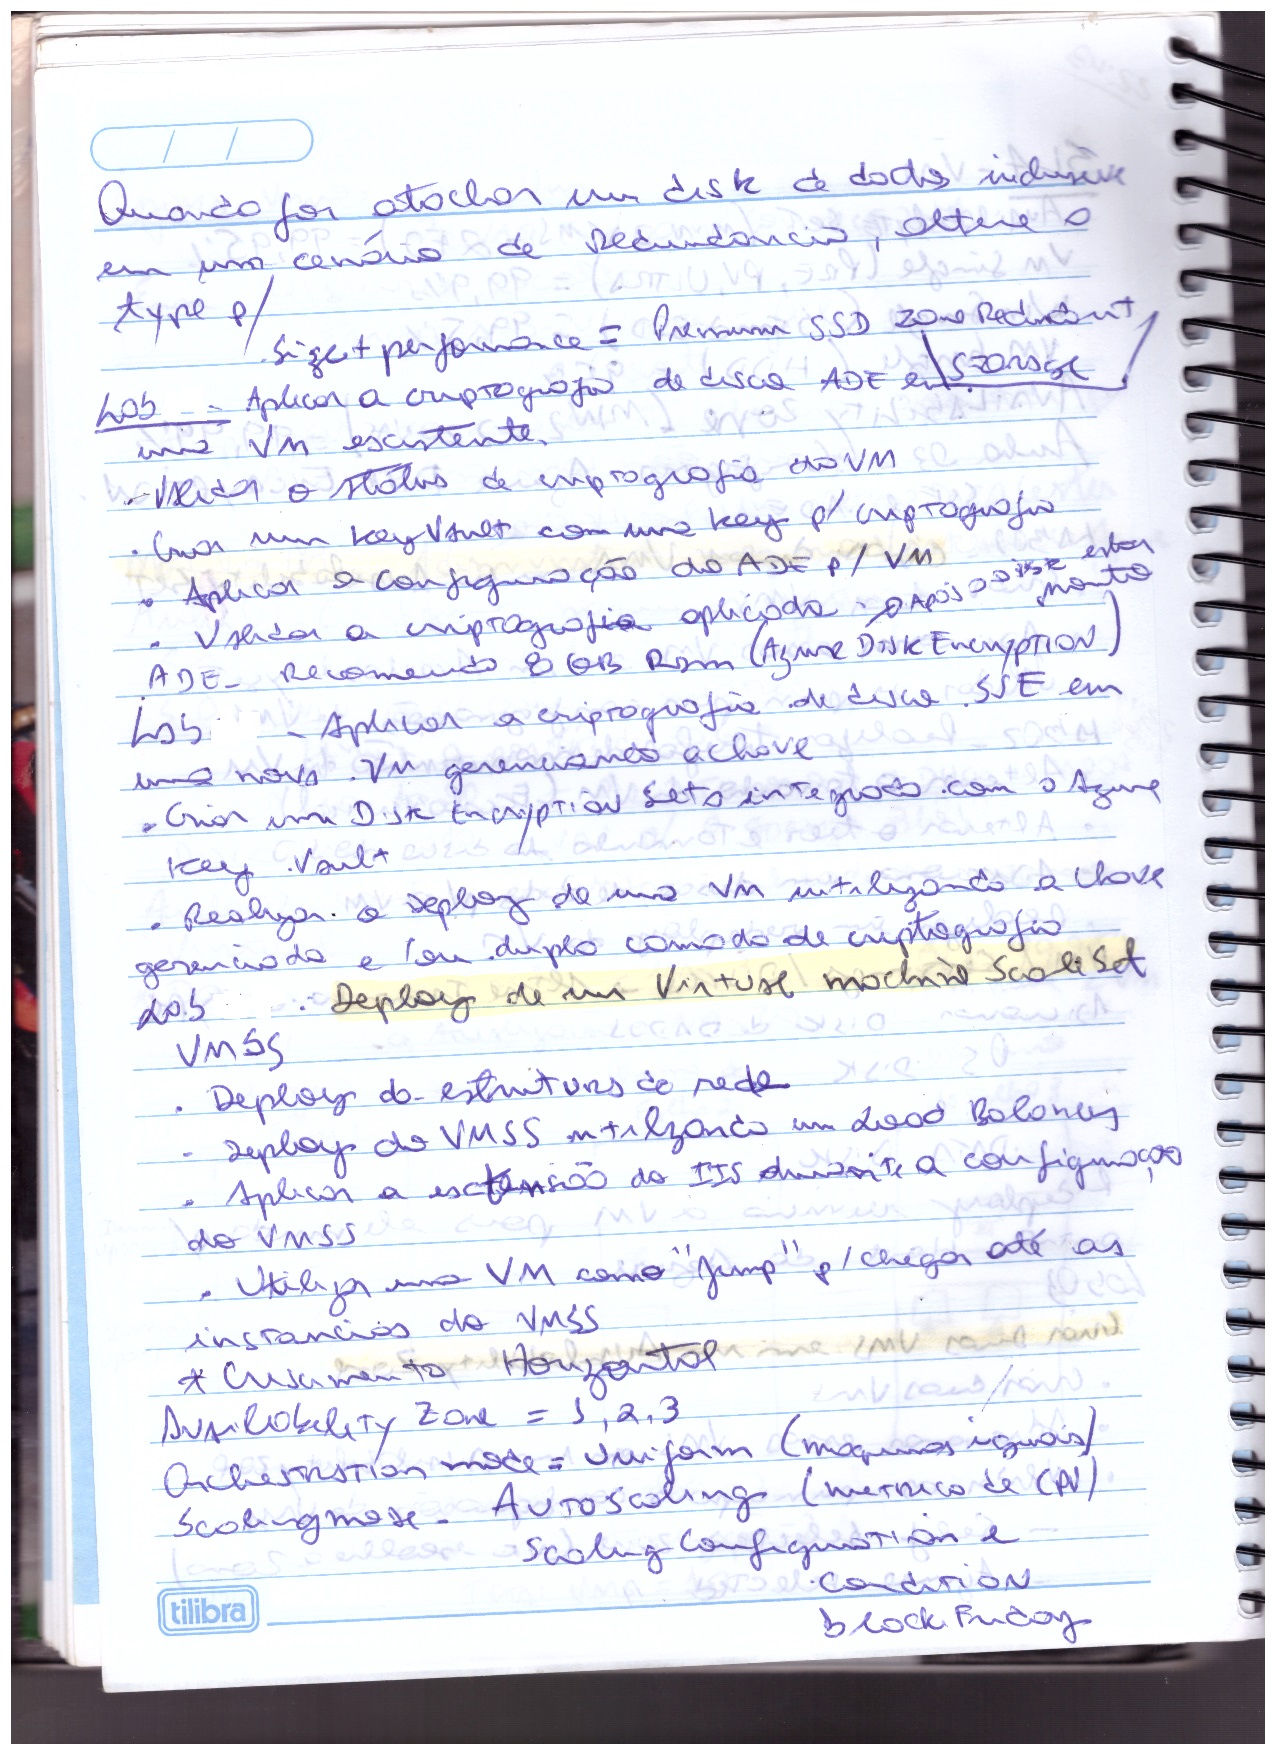 Quando for atachar um disk de dados inclusive
em um cenário de Redundância, altere o
type p/
Size + performance = Premium SSD zone Redundant
storage
Lab - Aplicar a criptografia de disco ADE em
uma VM existente.
- Validar o status de criptografia da VM
. Criar um Key Vault com uma key p/ criptografia
. Aplicar a configuração do ADE p/ VM
. Validar a criptografia aplicada. → Após o disk estar
pronto
ADE - Recomendo 8 GB Ram (Azure Disk Encryption)
Lab - Aplicar a criptografia de disco SSE em
uma nova VM gerenciando a chave
. Criar um Disk Encryption Sets integrado com o Azure
Key Vault
. Realizar o deploy de uma VM utilizando a chave
gerenciada e/ou dupla camada de criptografia
Lab . Deploy de um Virtual machine Scale Set
VMSS
. Deploy da estrutura de rede
- Deploy do VMSS utilizando um Load Balancing
. Aplicar a extensão do IIS durante a configuração
do VMSS
. Utilizar uma VM como "Jump" p/ chegar até as
instancias do VMSS
* Crescimento Horizontal
Availability Zone = 1, 2, 3
Orchestration mode = Uniform (maquinas iguais)
Scaling mode - Autoscaling (metrica de CPU)
Scaling Configuration e
condition
black Friday
tilibra